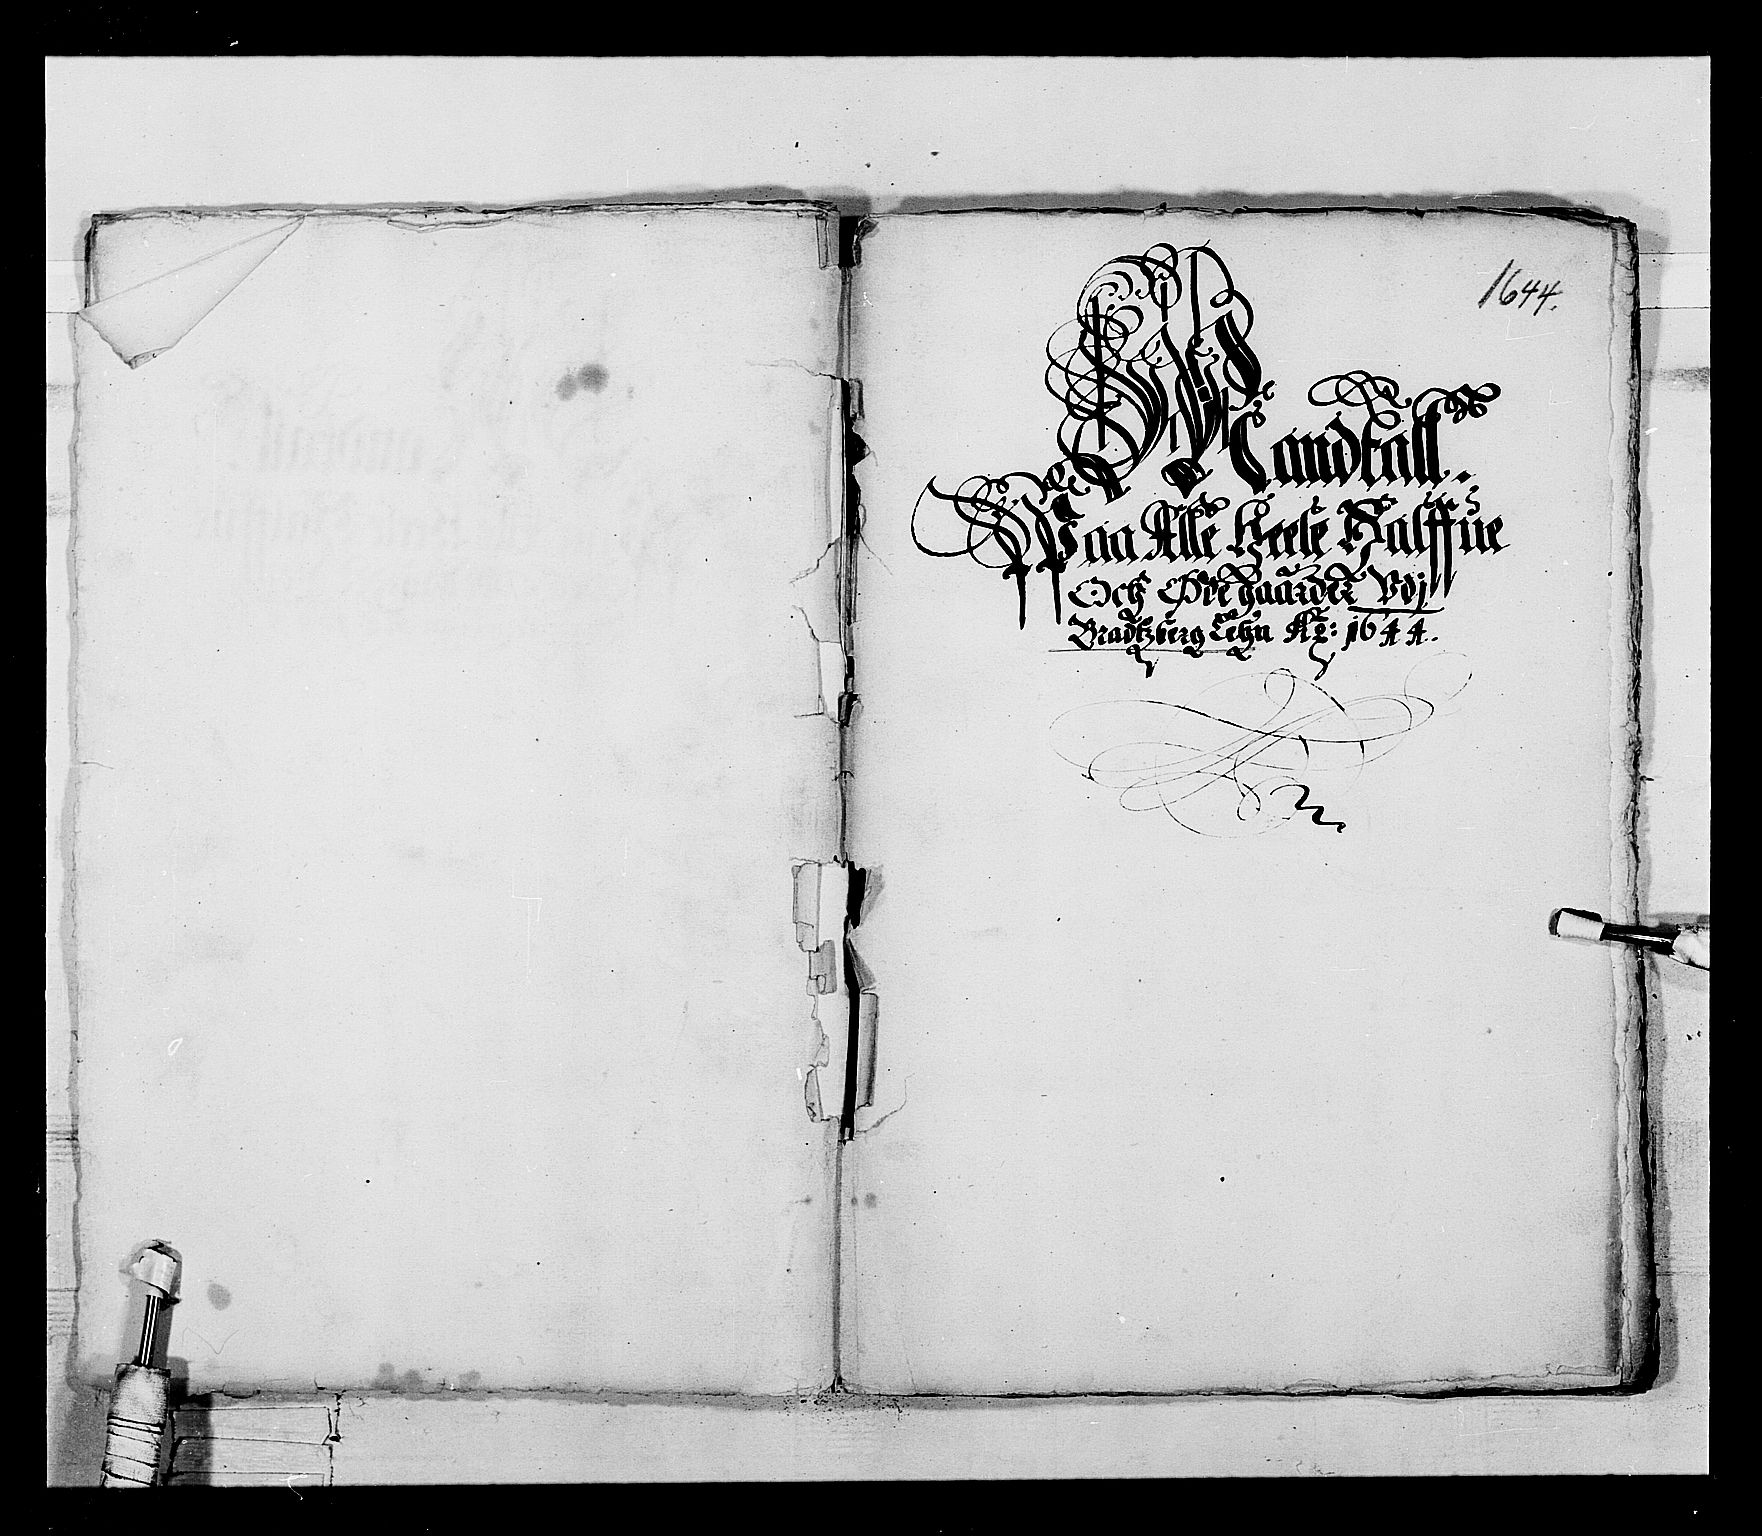 1644.
Mandtall.
Paa Alle Heele Halffue
Och Ødegaarder Vdj
Bradtzberg Lehn Aō: 1644.